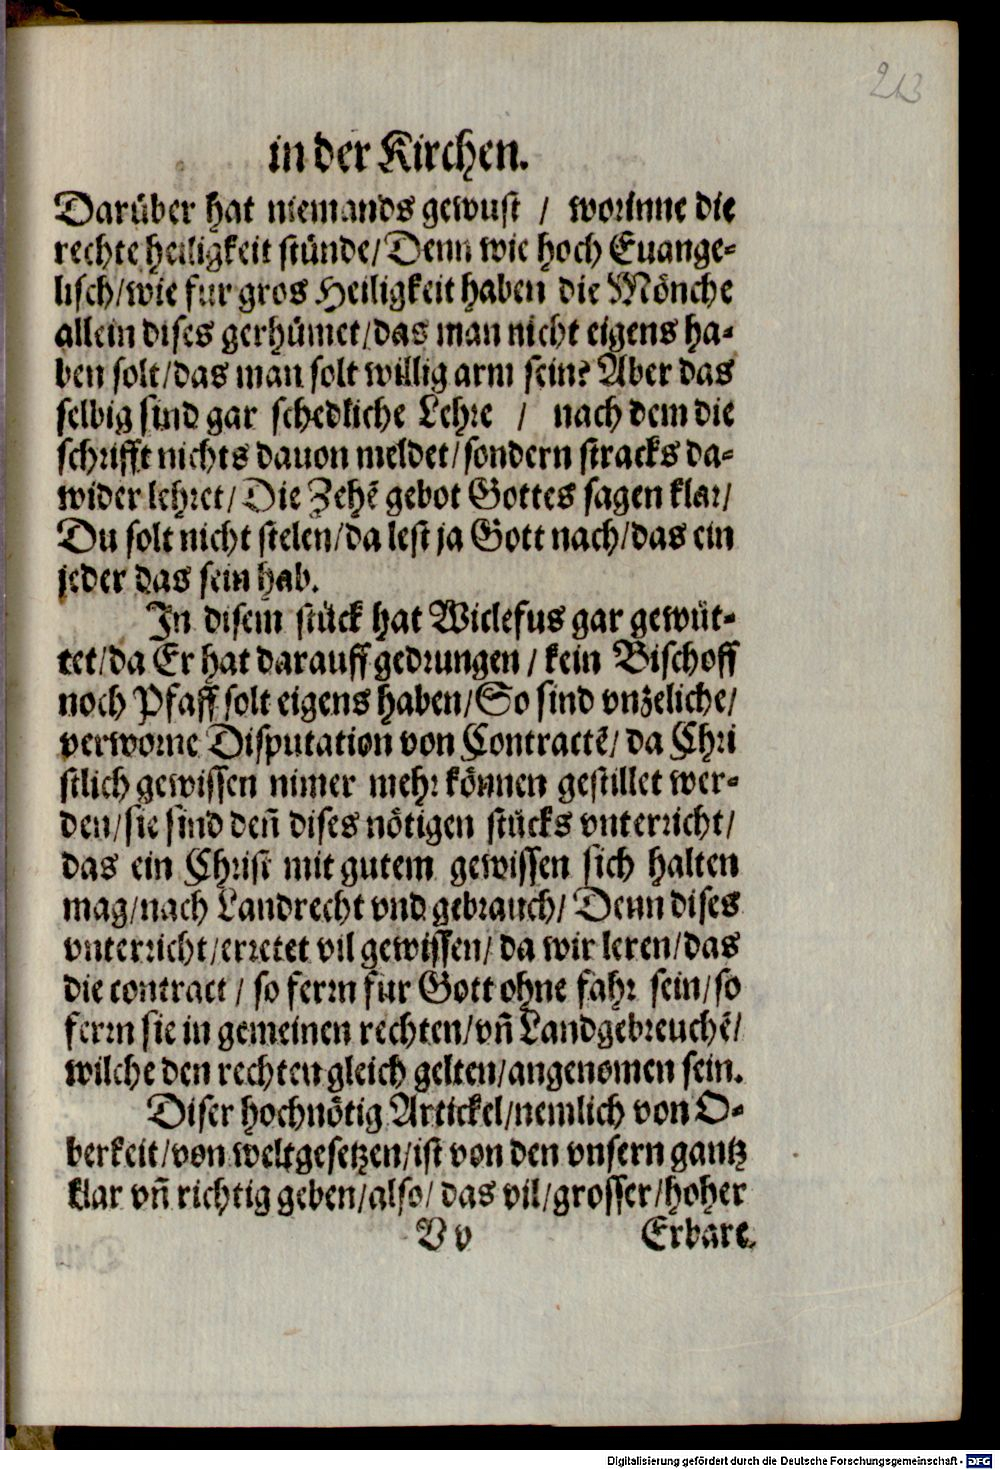 213
in der Kirchen.
Darüber hat niemands gewust / worinne die
rechte heiligkeit stünde/Denn wie hoch Euange-
lisch/wie fur gros Heiligkeit haben die Mönche
allein dises gerhümet/das man nicht eigens ha-
ben solt/das man solt willig arm sein? Aber das
selbig sind gar schedliche Lehre / nach dem die
schrifft nichts dauon meldet/sondern stracks da-
wider lehret/Die Zehē gebot Gottes sagen klar/
Du solt nicht stelen/da lest ja Gott nach/das ein
jeder das sein hab.
In disem stück hat Wiclefus gar gewüt-
tet/da Er hat darauff gedrungen / kein Bischoff
noch Pfaff solt eigens haben/So sind vnzeliche/
verworne Disputation von Contractē/ da Chri
stlich gewissen nimer mehr können gestillet wer-
den/sie sind deñ dises nötigen stücks vnterricht/
das ein Christ mit gutem gewissen sich halten
mag/nach Landrecht vnd gebrauch/ Denn dises
vnterricht/erretet vil gewissen/ da wir leren/das
die contract / so ferrn fur Gott ohne fahr sein/so
ferrn sie in gemeinen rechten/vñ Landgebreuchē/
wilche den rechten gleich gelten/angenomen sein.
Diser hochnötig Artickel/nemlich von O-
berkeit/von weltgesetzen/ist von den vnsern gantz
klar vñ richtig geben/also/ das vil/grosser/hoher
V v Erbare.
Digitalisierung gefördert durch die Deutsche Forschungsgemeinschaft - DFG